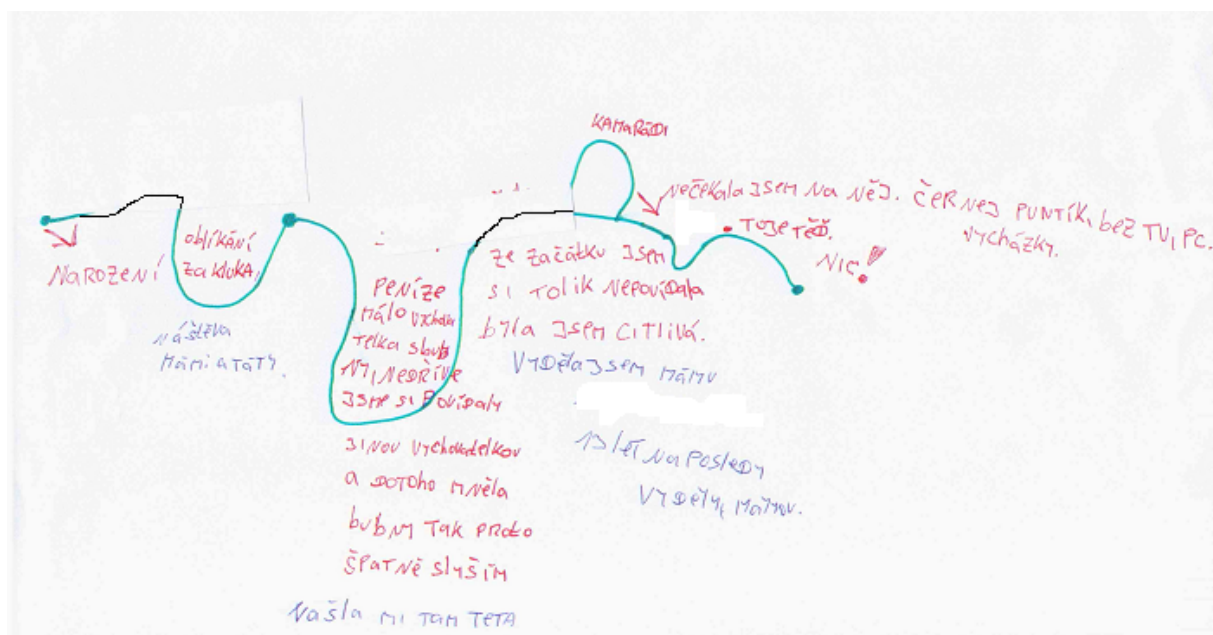 NAROZENÍ
oblíkání
za kluka,
náštěva
MÁMI A TÁTY.
PENÍZE
MÁLO vycho
telka sloub
NY, NEDŘÍVE
JSME SI POVÍDALY
JINOU vychovatelkou
a DOTOHO MNĚLA
bubny TAK PROTO
ŠPATNĚ slyším
Našla MI TAM TETA
ZE ZAČÁTKU JSEM
SI TOLIK NEPOVÍDALA
byla JSEM CITLIVÁ.
VYDĚLA JSEM MÁMU
13 let NAPOSLEDY
VYDĚLY, MÁMOU.
KAMARÁDI
NEČEKALA JSEM NA NĚJ. ČERNEJ PUNTÍK, bez TV, PC.
VYCHÁZKY.
TO JE TĚĎ.
NIC!